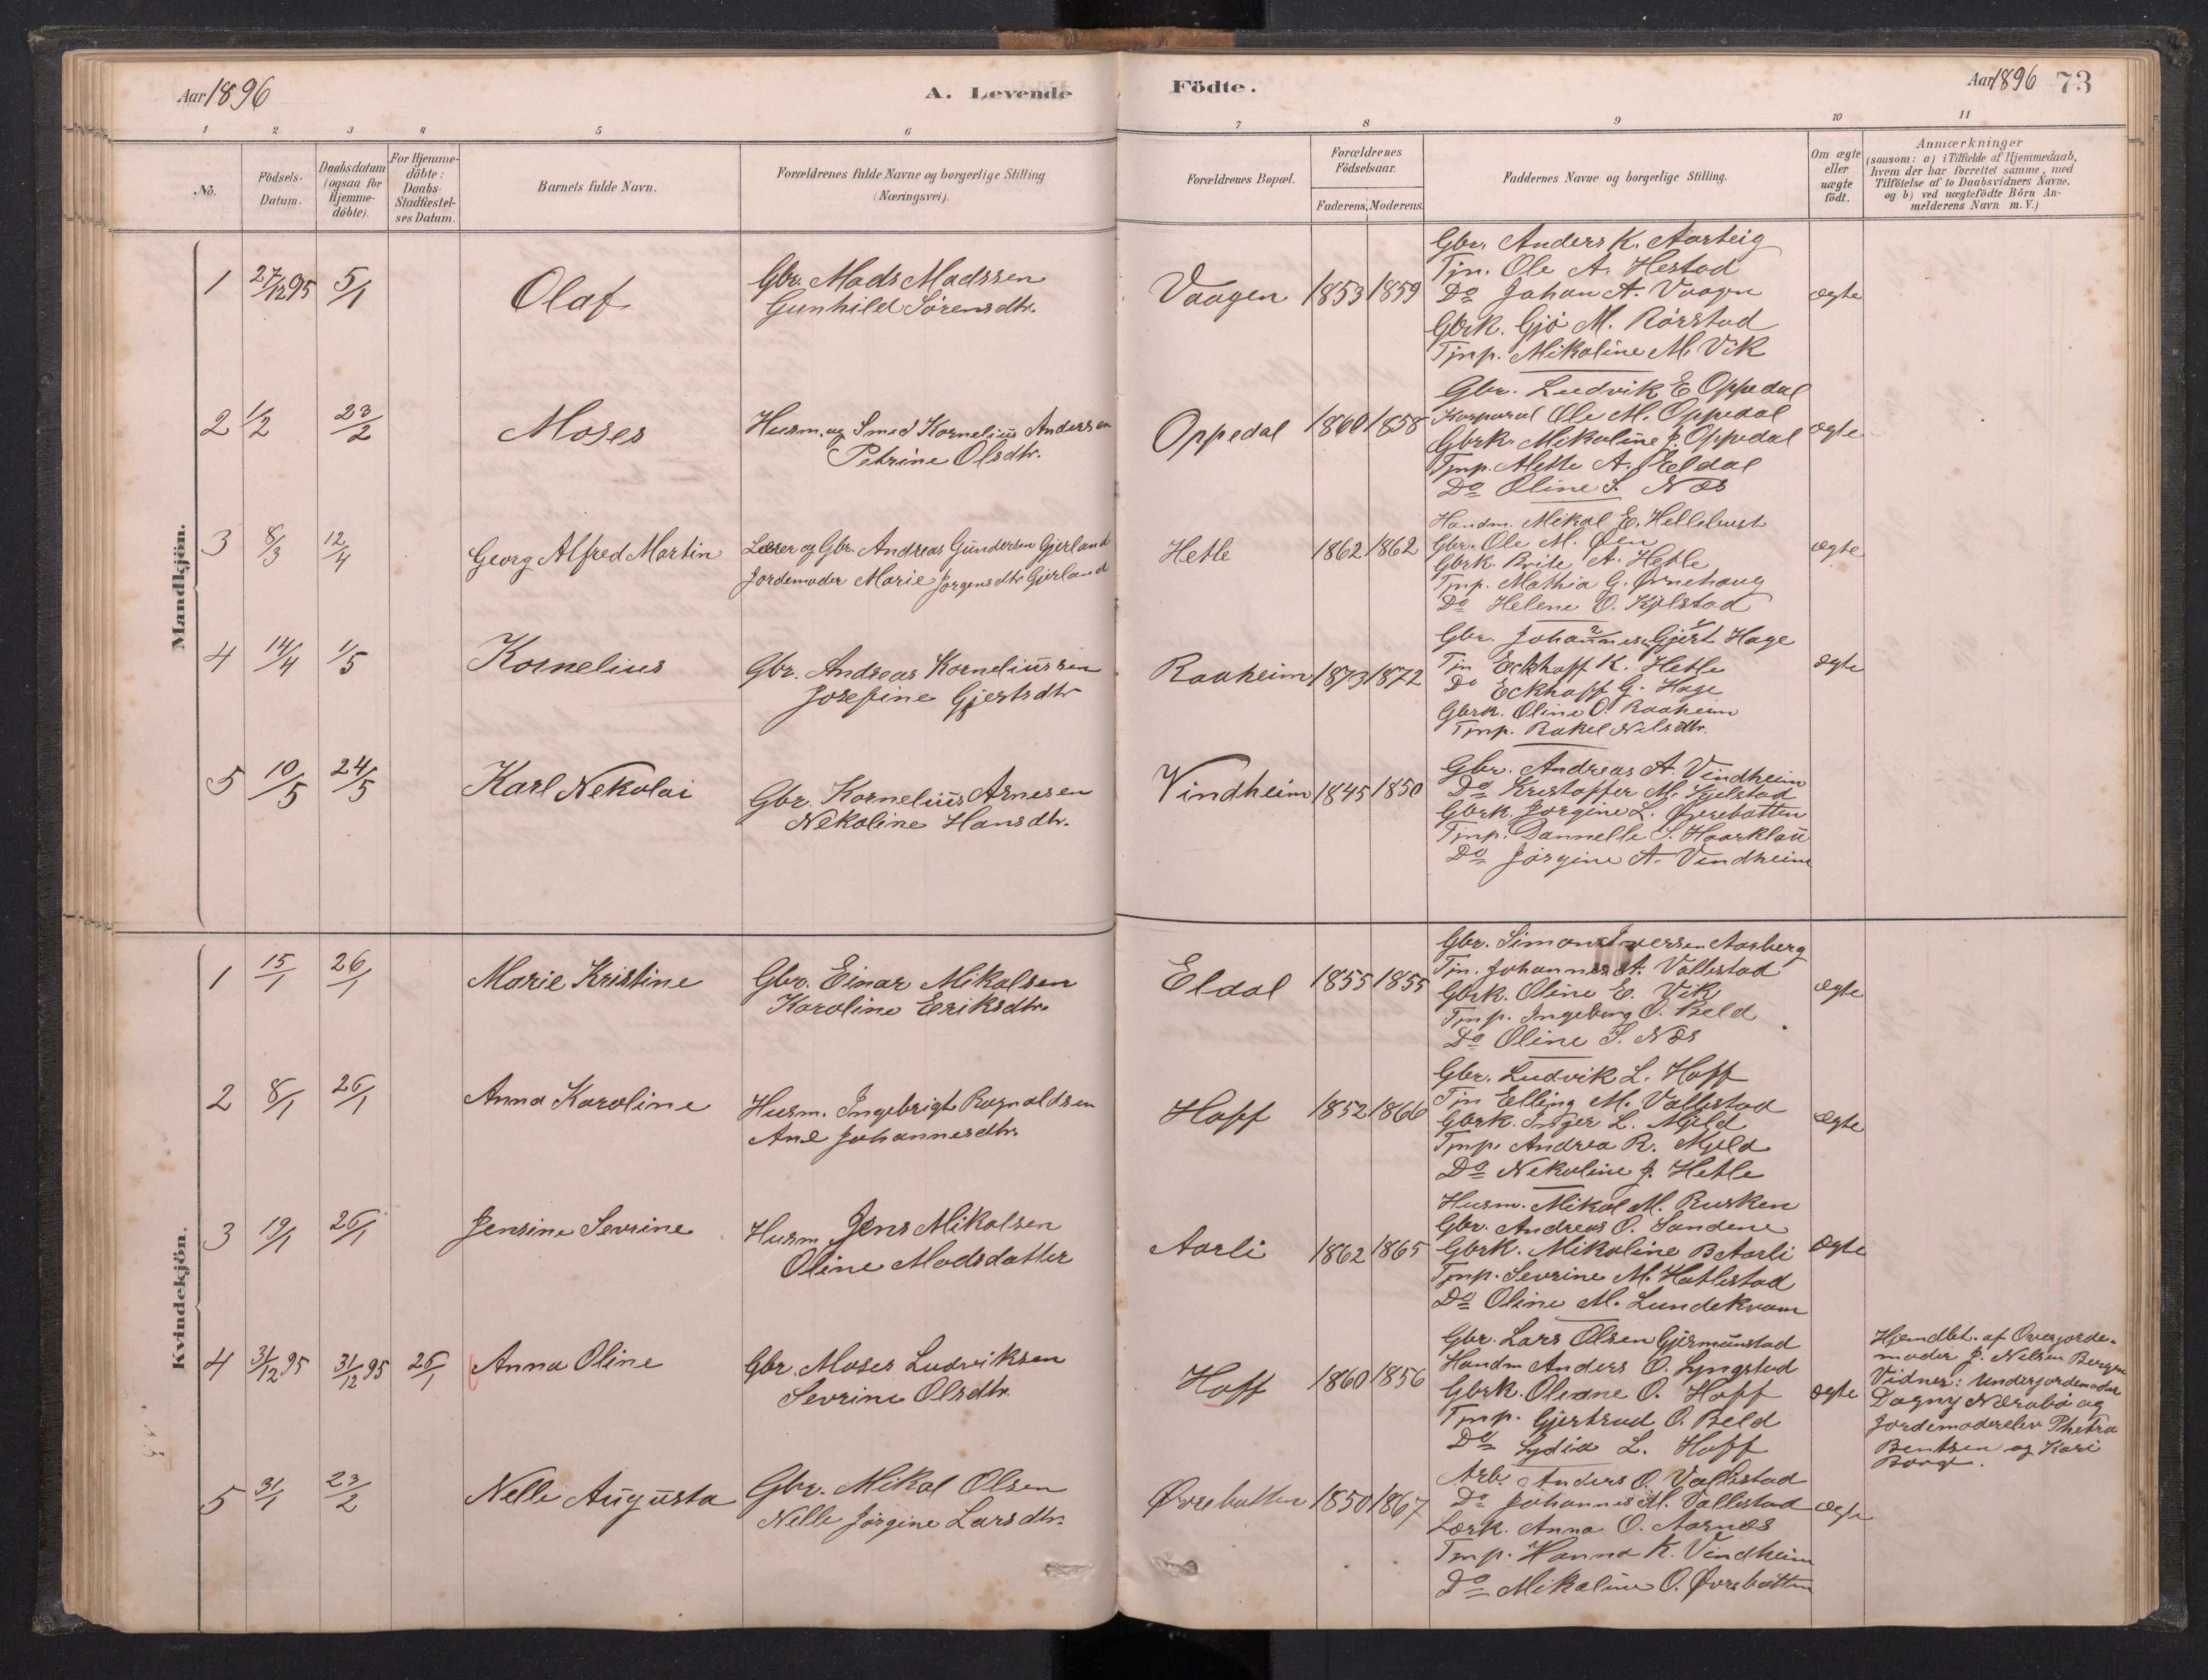 Aar 1896
A. Levende
Födte.
Aar 1896 73
1 2 3 4 5 6 7 8 9 10 11
No. Födsels-Datum. Daabsdatum (ogsaa for Hjemme-döbte). For Hjemme-döbte: Daabs-Stadfæstel-ses Datum. Barnets fulde Navn. Forældrenes fulde Navne og borgerlige Stilling (Næringsvei). Forældrenes Bopæl. Forældrenes Födselsaar. Faderens. Moderens. Faddernes Navne og borgerlige Stilling. Om ægte eller uægte födt. Anmærkninger (saasom: a) i Tilfælde af Hjemmedaab, hvem der har forrettet samme, med Tilföielse af to Daabsvidners Navne, og b) ved uægtefödte Börn An-melderens Navn m. V.)
Mandkjön.
1 27/12 95 5/1 Olaf Gbr. Mads Madssen
Gunhild Sørensdtr.
Vaagen 1853 1859 ægte
Gbr. Anders K. Aarteig
Tjn. Ole A. Hestad
Do Johan A. Vaagen
Gbrk. Gjø M. Rørstad
Tjnp. Mikoline M. Vik
2 1/2 23/2 Moses Husm. og Smed Kornelius Anderssen
Petrine Olsdtr.
Oppedal 1860 1858 ægte
Gbr. Ludvik E Oppedal
Korporal Ole M. Oppedal
Gbrk. Mikoline J. Oppedal
Tjnp. Mette A. Eeldal
Do Oline S. Næs
3 8/3 12/4 Georg Alfred Martin Lærer og Gbr. Andreas Gundersen Gjerland
Jordemoder Marie Jørgensdtr Gjerland
Hetle 1862 1862 ægte
Handm. Mikal E. Hellebust
Gbr. Ole M. Øen
Gbrk. Brite A. Hetle
Tjnp. Mathia G. Ørnehaug
Do Helene O. Kjelstad
4 14/4 1/5 Kornelius Gbr. Andreas Korneliussen
Josefine Gjertsdtr
Raaheim 1873 1872 ægte
Gbr. Johannes Gjert Hage
Tjn Eckhoff K. Hetle
Do Eckhoff G. Hage
Gbrk. Oline O. Raaheim
Tjnp. Rakel Nilsdtr.
5 10/5 24/5 Karl Nekolai Gbr. Kornelius Arnesen
Nekoline Hansdtr.
Vindheim 1845 1850
Gbr. Andreas A. Vindheim
Do Kristoffer M. Kjelstad
Gbrk. Jørgine L. Øvrebotten
Tjnp. Dannelle S. Haarklau
Do Jørgine A. Vindheim
Kvindekjön.
1 15/1 26/1 Marie Kristine Gbr. Einar Mikalsen
Karoline Eriksdtr.
Eldal 1855 1855 ægte
Gbr. Simon Iversen Aarberg
Tjn. Johannes A. Vallestad
Gbrk. Oline E. Vik
Tjnp. Ingeborg O. Beld
Do Oline S. Næs
2 8/1 26/1 Anna Karoline Husm. Ingebrigt Ragnaldsen
Ane Johannesdtr.
Hoff 1852 1866 ægte
Gbr. Ludvik L. Hoff
Tjn Elling M. Vallestad
Gbrk. Inger L. Mjeld
Tjnp. Andrea R. Mjeld
Do Nekoline J. Hetle
3 19/1 26/1 Jensine Sevrine Husm. Jens Mikalsen
Oline Madsdatter
Aarli 1862 1865 ægte
Husm. Mikal M. Rusken
Gbr. Andreas O. Sandene
Gbrk. Mikoline B Aarli
Tjnp. Sevrine M. Hatlestad
Do Oline M. Lundekvam
4 31/12 95 31/12 95 26/1 Anna Oline Gbr. Moses Ludviksen
Sevrine Olsdtr.
Hoff 1860 1856 ægte
Gbr. Lars Olsen Gjermunstad
Handm Anders O. Lyngstad
Gbrk. Oleane O. Hoff
Tjnp. Gjertrud O. Beld
Do Lydia L. Hoff
Hjemdbt. af Overjorde-
moder J. Nilsen Bergen
Vidner: Underjordemoder
Dagny Nærabø og
Jordemoderelev Phetra
Bentsen og Kari
Borge.
5 31/1 23/2 Nelle Augusta Gbr. Mikal Olsen
Nelle Jørgine Larsdtr.
Øvrebotten 1850 1867 ægte
Arb. Anders O. Vallestad
Do Johannes M. Vallestad
Lærk. Anna O. Aarnæs
Tjnp. Hanna K. Vindheim
Do Mikaline O. Øvrebotten